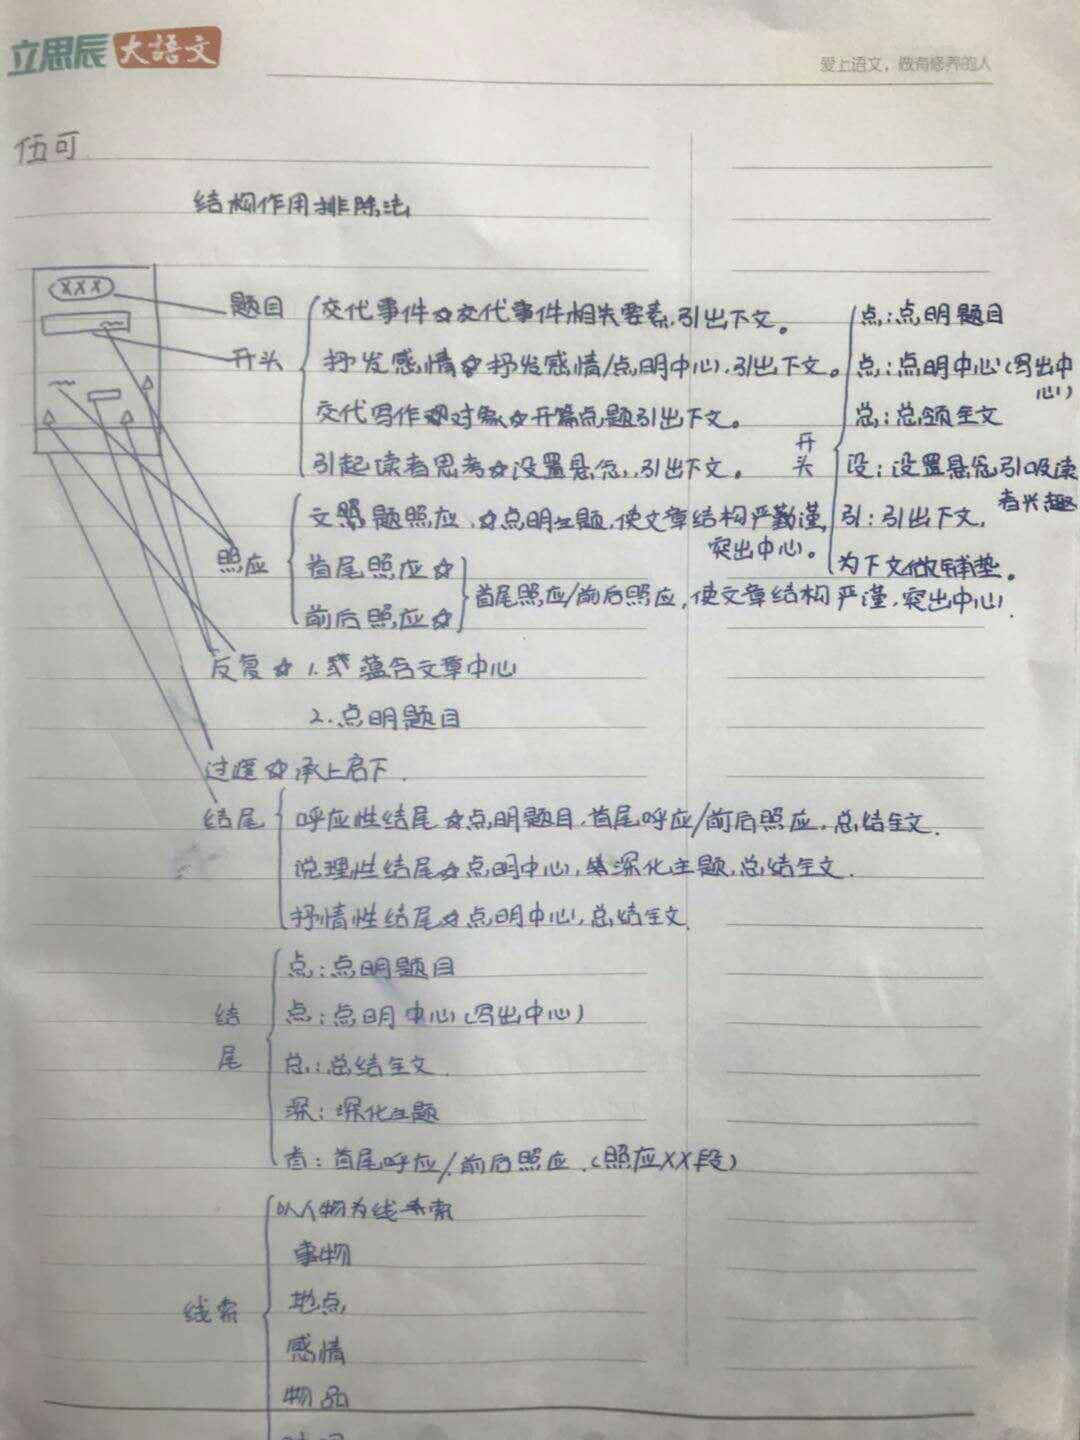 立思辰大語文
爱上语文，做有修养的人
伍可
结构作用排除法
XXX
题目
开头
交代事件☆交代事件相关要素,引出下文。
抒发感情☆抒发感情/点明中心,引出下文。
交代写作对象☆开篇点题引出下文。
引起读者思考☆设置悬念,引出下文。
开头
点:点明题目
点:点明中心(写出中心)
总:总领全文
设:设置悬念引吸读者兴趣
引:引出下文,
为下文做铺垫。
照应
文题照应,☆点明主题,使文章结构严谨,突出中心。
首尾照应☆
前后照应☆
首尾照应/前后照应,使文章结构严谨,突出中心.
反复☆ 1.蕴含文章中心
2.点明题目
过渡☆承上启下.
结尾
呼应性结尾☆点明题目,首尾呼应/前后照应,总结全文.
说理性结尾☆点明中心,深化主题,总结全文.
抒情性结尾☆点明中心,总结全文.
结尾
点:点明题目
点:点明中心(写出中心)
总:总结全文.
深:深化主题
首:首尾呼应/前后照应.(照应XX段)
线索
以人物为线索
事物
地点
感情
物品